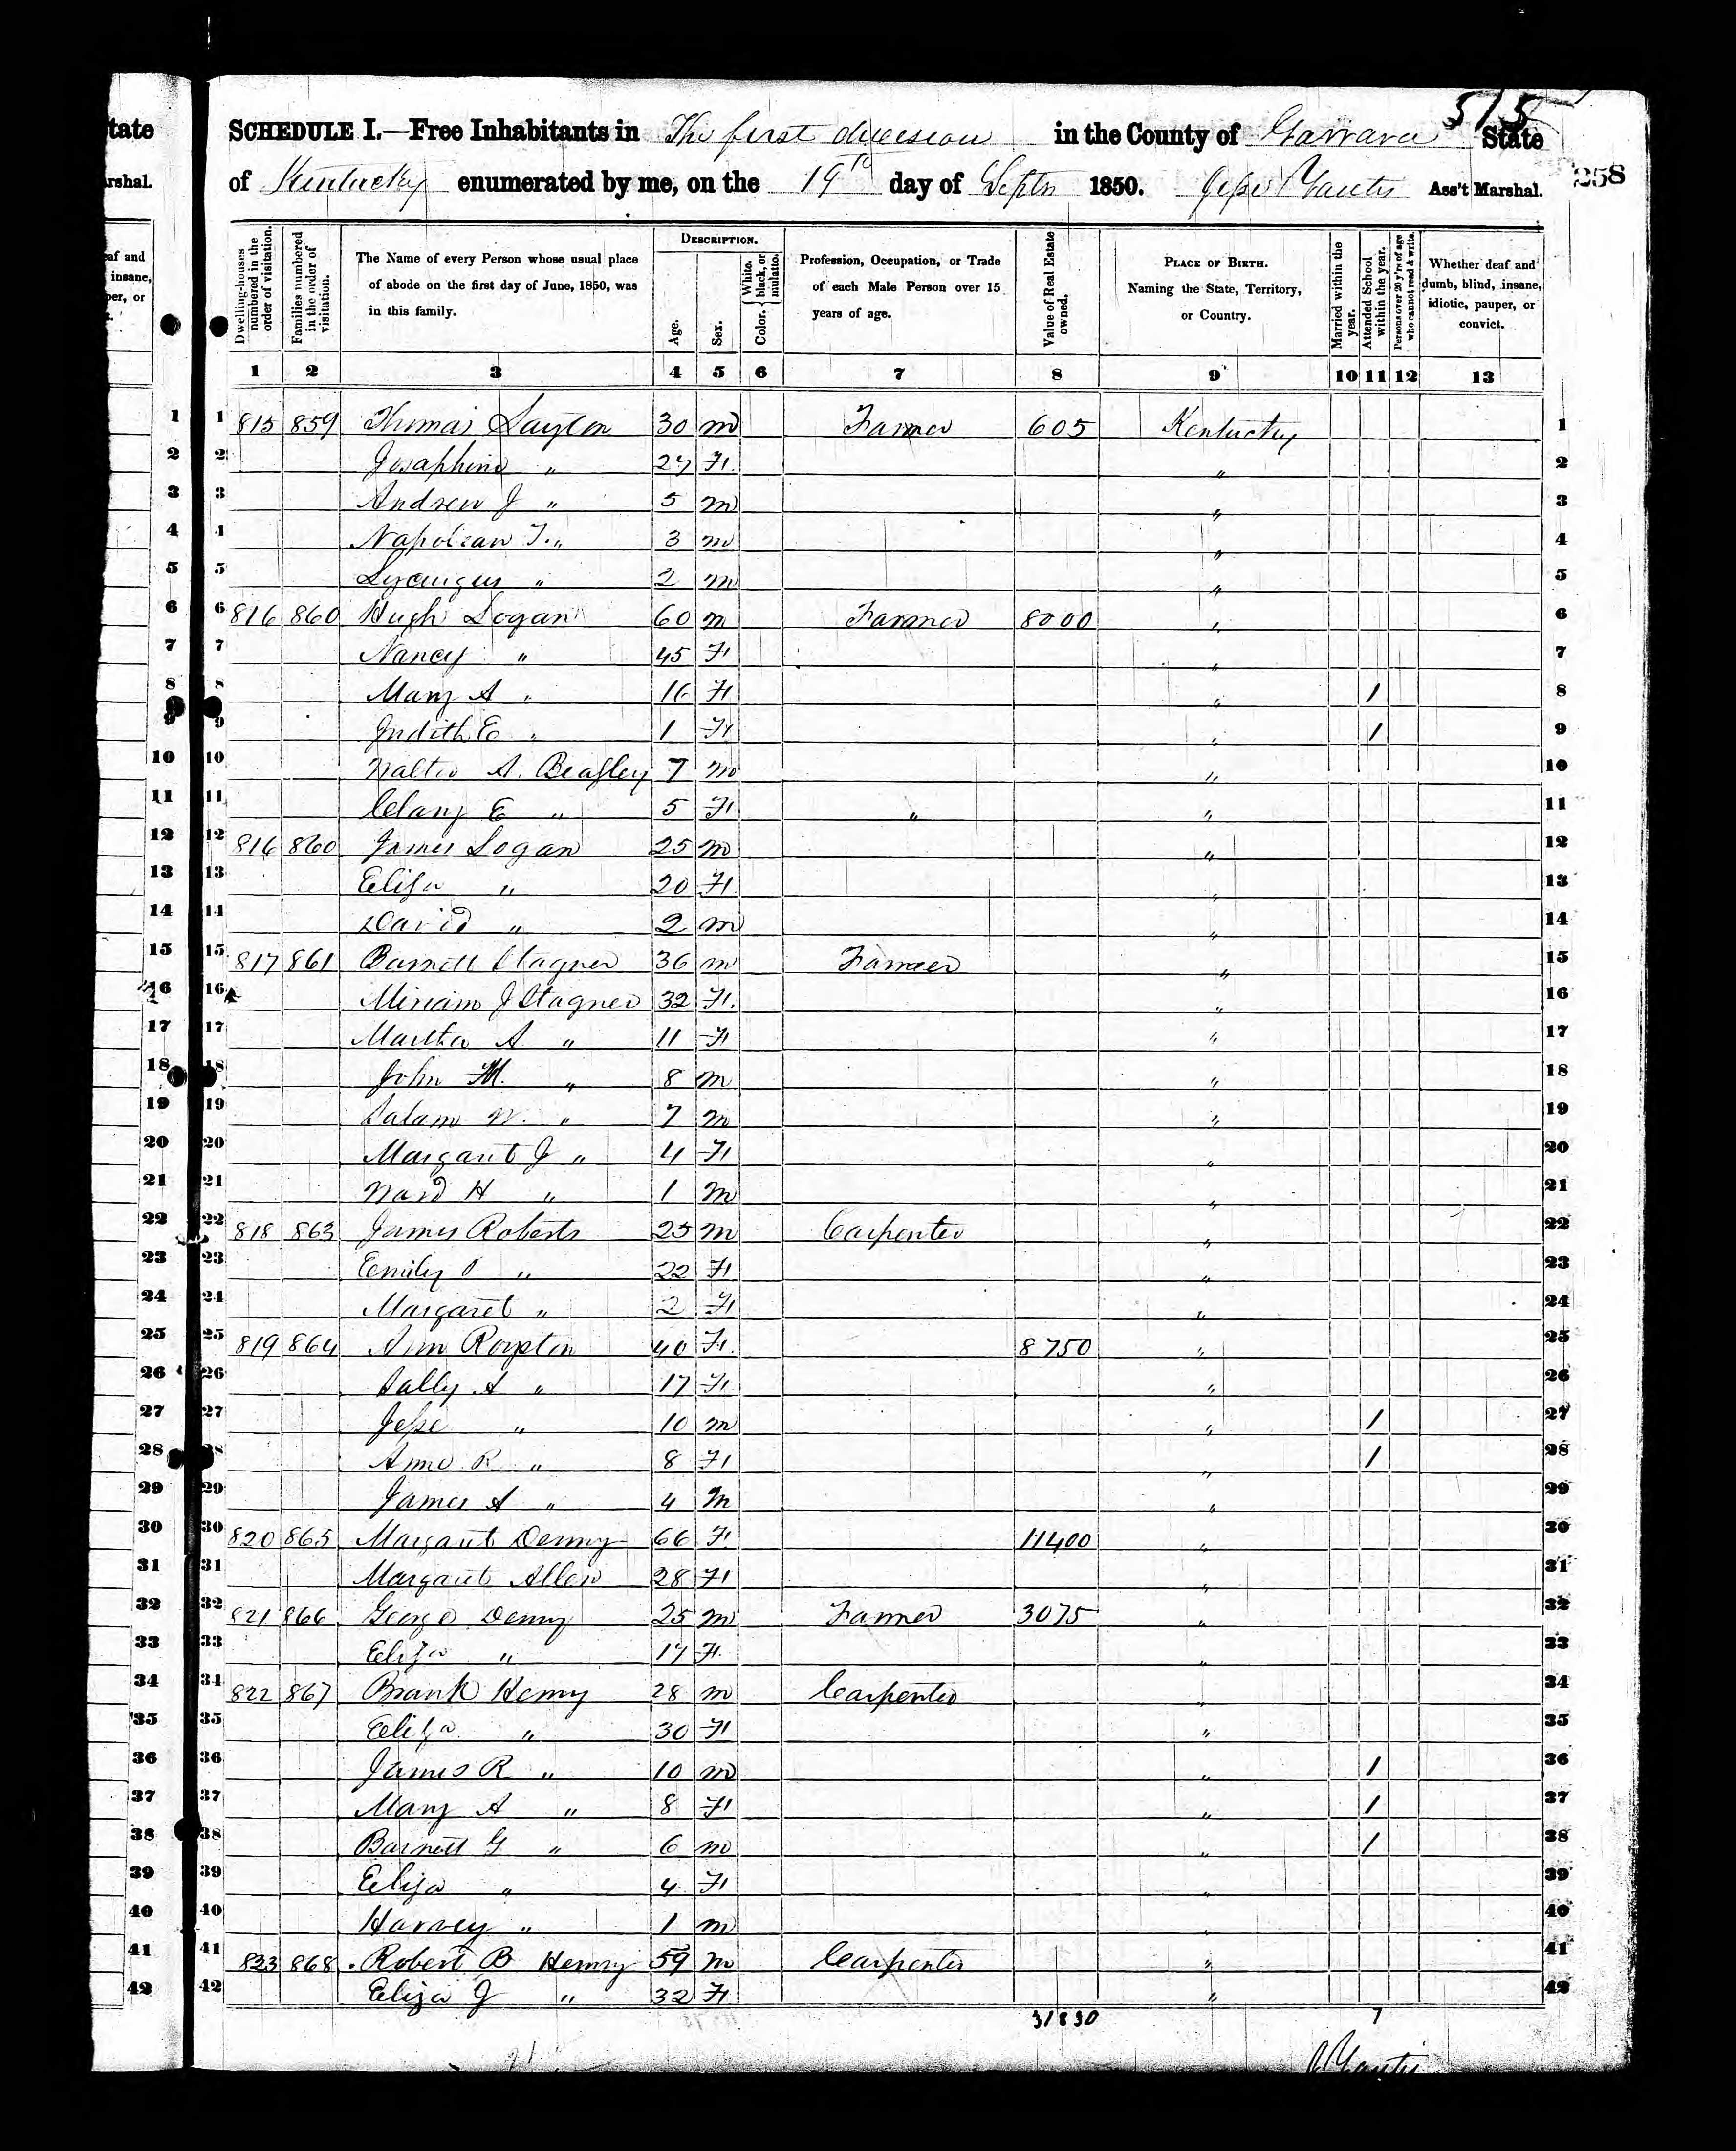 515
SCHEDULE I.—Free Inhabitants in The first division in the County of Garrard State
of Kentucky enumerated by me, on the 19th day of Septr 1850. Ass't Marshal.
258
tate
rshal.
af and
insane,
per, or
Dwelling-houses numbered in the order of visitation.
Families numbered in the order of visitation.
The Name of every Person whose usual place of abode on the first day of June, 1850, was in this family.
DESCRIPTION.
Age.
Sex.
Color. { White, black, or mulatto.
Profession, Occupation, or Trade of each Male Person over 15 years of age.
Value of Real Estate owned.
PLACE OF BIRTH. Naming the State, Territory, or Country.
Married within the year.
Attended School within the year.
Persons over 20 y'rs of age who cannot read & write.
Whether deaf and dumb, blind, insane, idiotic, pauper, or convict.
1 2 3 4 5 6 7 8 9 10 11 12 13
1 1 815 859 Thomas Layton 30 m Farmer 605 Kentucky 1
2 2 Josaphine " 27 F. " 2
3 3 Andrew J " 5 m " 3
4 4 Napolean T. " 3 m " 4
5 5 Lycurgus " 2 m " 5
6 6 816 860 Hugh Logan 60 m Farmer 8000 " 6
7 7 Nancy " 45 F " 7
8 8 Mary A " 16 F " 1 8
9 9 Judith E " 1 F " 1 9
10 10 Walter A. Beasley 7 m " 10
11 11 E " 5 F " " 11
12 12 816 860 James Logan 25 m " 12
13 13 Eliza " 20 F " 13
14 14 David " 2 m " 14
15 15 817 861 Burnell Stagner 36 m Farmer " 15
16 16 Miriam J Stagner 32 F. " 16
17 17 Martha A " 11 F " 17
18 18 John M. " 8 m " 18
19 19 W. " 7 m " 19
20 20 Margaret J " 4 F " 20
21 21 Ward H " 1 m " 21
22 22 818 863 James Roberts 25 m Carpenter " 22
23 23 Emily " 22 F " 23
24 24 Margaret " 2 F " 24
25 25 819 864 Ann Royston 40 F. 8750 " 25
26 26 Sally A " 17 F " 26
27 27 Jesse " 10 m " 1 27
28 28 Anne R " 8 F " 1 28
29 29 James A " 4 m " 29
30 30 820 865 Margaret Denny 66 F. 11400 " 30
31 31 Margaret Allen 28 F " 31
32 32 821 866 George Denny 25 m Farmer 3075 " 32
33 33 Eliza " 17 F. " 33
34 34 822 867 Brank Henry 28 m Carpenter " 34
35 35 Eliza " 30 F " 35
36 36 James R " 10 m " 1 36
37 37 Mary A " 8 F " 1 37
38 38 Barnett G " 6 m " 1 38
39 39 Eliza " 4 F " 39
40 40 Harvey " 1 m " 40
41 41 823 868 Robert B Henry 59 m Carpenter " 41
42 42 Eliza J " 32 F " 42
31830 7